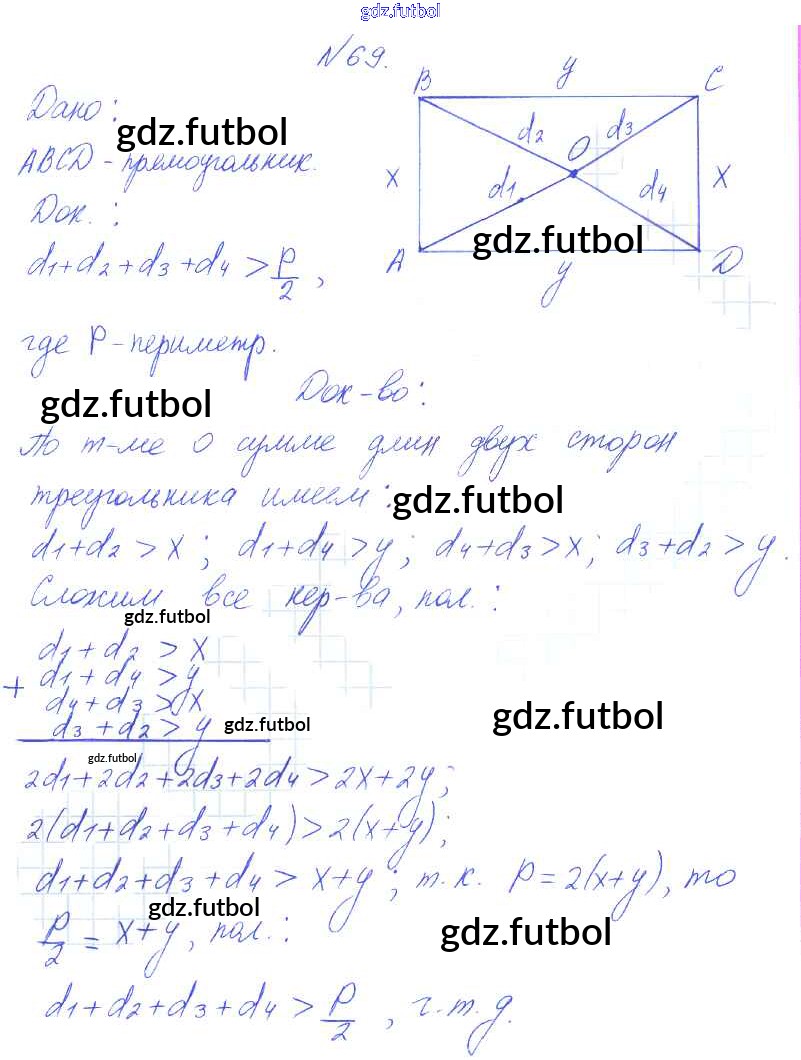 gdz.futbol
№69.
Дано:
gdz.futbol
ABCD - прямоугольник.
Док.:
d1+d2+d3+d4 > P/2,
где P - периметр.
B y C
d2 O d3
X d1 d4 X
A gdz.futbol D
y
Док-во:
gdz.futbol
По т-ме о сумме длин двух сторон
треугольника имеем:
gdz.futbol
d1+d2 > x; d1+d4 > y; d4+d3 > x; d3+d2 > y.
Сложим все нер-ва, пол.:
gdz.futbol
d1+d2 > x
+ d1+d4 > y
d4+d3 > x
d3+d2 > y
gdz.futbol
gdz.futbol
gdz.futbol
2d1+2d2+2d3+2d4 > 2x+2y;
2(d1+d2+d3+d4) > 2(x+y);
d1+d2+d3+d4 > x+y; т.к. P=2(x+y), то
gdz.futbol
P/2 = x+y, пол.:
gdz.futbol
d1+d2+d3+d4 > P/2, ч.т.д.